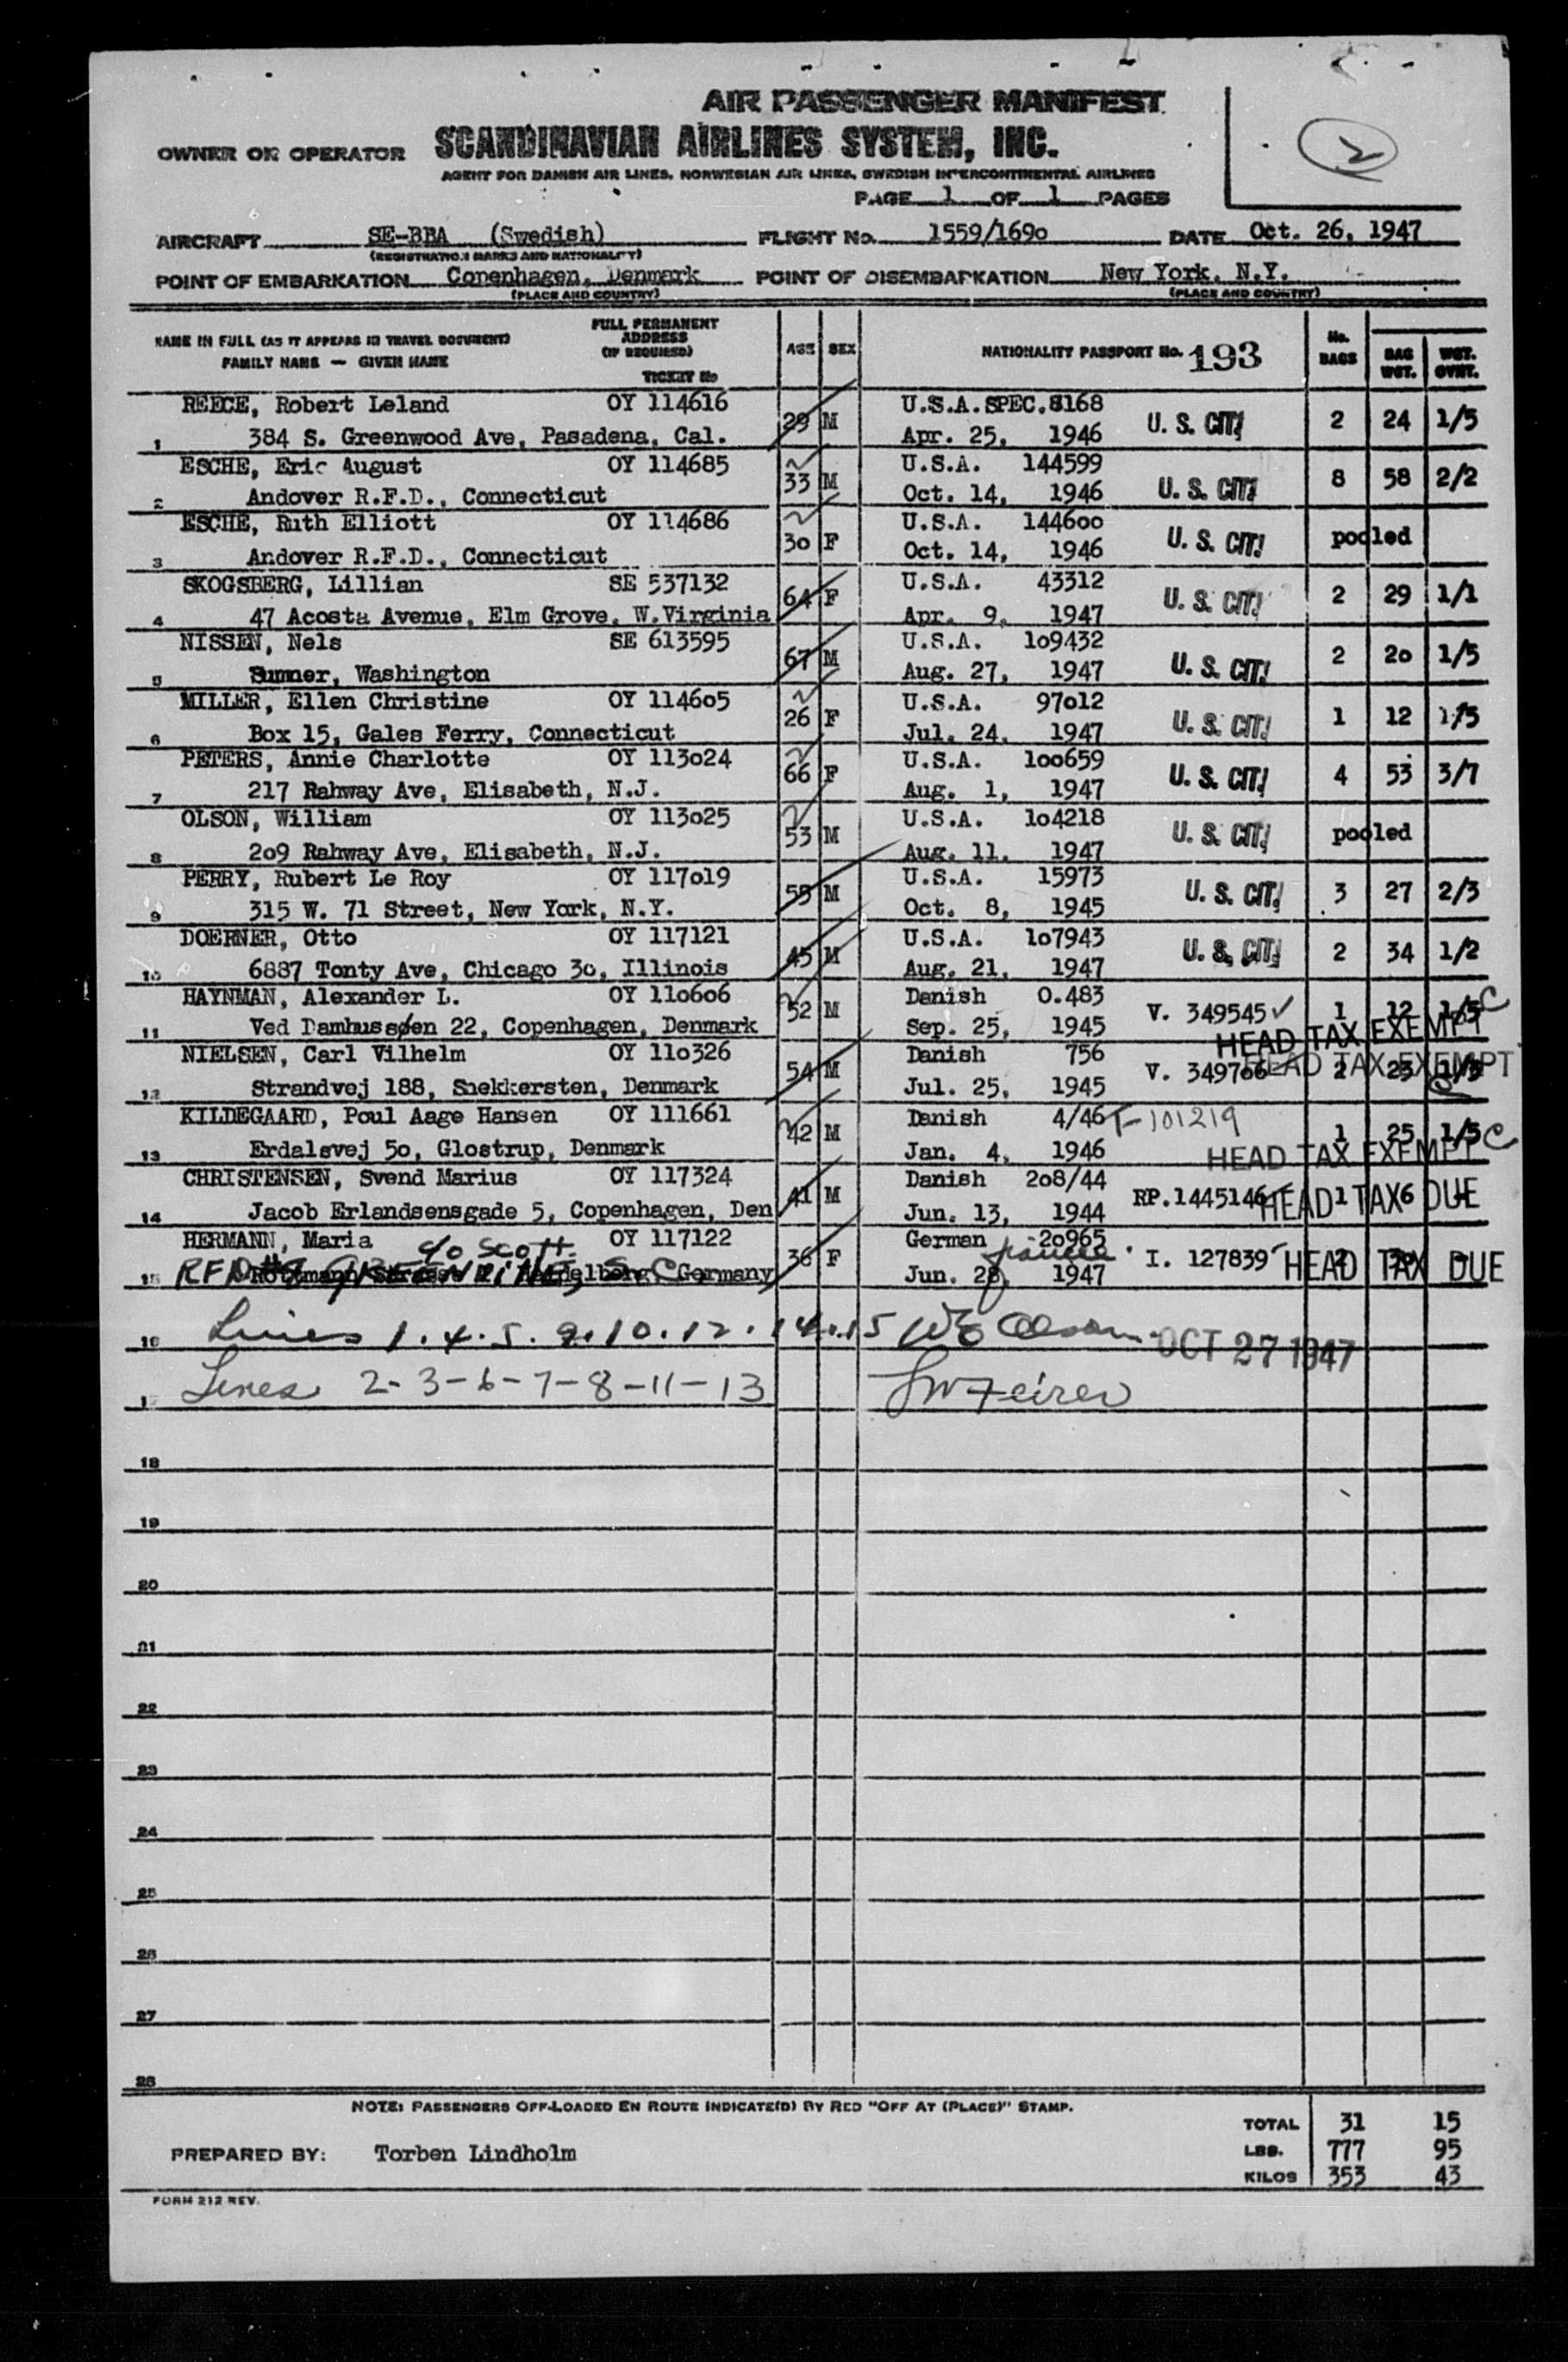 AIR PASSENGER MANIFEST
2
OWNER OR OPERATOR SCANDINAVIAN AIRLINES SYSTEM, INC.
AGENT FOR DANISH AIR LINES, NORWEGIAN AIR LINES, SWEDISH INTERCONTINENTAL AIRLINES
PAGE 1 OF 1 PAGES
AIRCRAFT SE-BBA (Swedish) FLIGHT No. 1559/1690 DATE Oct. 26, 1947
(REGISTRATION MARKS AND NATIONALITY)
POINT OF EMBARKATION Copenhagen, Denmark POINT OF DISEMBARKATION New York, N.Y.
(PLACE AND COUNTRY) (PLACE AND COUNTRY)
NAME IN FULL (AS IT APPEARS IN TRAVEL DOCUMENT) FAMILY NAME — GIVEN NAME
FULL PERMANENT ADDRESS (IF REQUIRED) TICKET No
AGE SEX NATIONALITY PASSPORT No. 193 No. BAGS BAG WGT. WGT. OVHT.
REECE, Robert Leland OY 114616 29 M U.S.A. SPEC. 8168 U. S. CIT! 2 24 1/5
1 384 S. Greenwood Ave, Pasadena, Cal. Apr. 25, 1946
ESCHE, Eric August OY 114685 33 M U.S.A. 144599 U. S. CIT! 8 58 2/2
2 Andover R.F.D., Connecticut Oct. 14, 1946
ESCHE, Ruth Elliott OY 114686 30 F U.S.A. 144600 U. S. CIT! pooled
3 Andover R.F.D., Connecticut Oct. 14, 1946
SKOGSBERG, Lillian SE 537132 64 F U.S.A. 43312 U. S. CIT! 2 29 1/1
4 47 Acosta Avenue, Elm Grove, W.Virginia Apr. 9, 1947
NISSEN, Nels SE 613595 67 M U.S.A. 109432 U. S. CIT! 2 20 1/5
5 Sumner, Washington Aug. 27, 1947
MILLER, Ellen Christine OY 114605 26 F U.S.A. 97012 U. S. CIT! 1 12 1/5
6 Box 15, Gales Ferry, Connecticut Jul. 24, 1947
PETERS, Annie Charlotte OY 113024 66 F U.S.A. 100659 U. S. CIT! 4 53 3/7
7 217 Rahway Ave, Elisabeth, N.J. Aug. 1, 1947
OLSON, William OY 113025 53 M U.S.A. 104218 U. S. CIT! pooled
8 209 Rahway Ave, Elisabeth, N.J. Aug. 11, 1947
PERRY, Rubert Le Roy OY 117019 55 M U.S.A. 15973 U. S. CIT! 3 27 2/3
9 315 W. 71 Street, New York, N.Y. Oct. 8, 1945
DOERNER, Otto OY 117121 45 M U.S.A. 107943 U. S. CIT! 2 34 1/2
10 6887 Tonty Ave, Chicago 30, Illinois Aug. 21, 1947
HAYNMAN, Alexander L. OY 110606 52 M Danish 0.483 V. 349545 1 12 1/5 C
11 Ved Damhussøen 22, Copenhagen, Denmark Sep. 25, 1945 HEAD TAX EXEMPT
NIELSEN, Carl Vilhelm OY 110326 54 M Danish 756 V. 349766 2 23 1/5 HEAD TAX EXEMPT C
12 Strandvej 188, Snekkersten, Denmark Jul. 25, 1945
KILDEGAARD, Poul Aage Hansen OY 111661 42 M Danish 4/46 T-101219 1 25 1/5 C
13 Erdalsvej 50, Glostrup, Denmark Jan. 4, 1946 HEAD TAX EXEMPT
CHRISTENSEN, Svend Marius OY 117324 41 M Danish 208/44 RP.1445146 1 6 HEAD TAX DUE
14 Jacob Erlandsensgade 5, Copenhagen, Den Jun. 13, 1944
HERMANN, Maria c/o Scott OY 117122 36 F German 20965 I. 127839 2 HEAD TAX DUE
15 RFD Germany Jun. 28, 1947
16 Lines 1.4.5.9.10.12.14.15 OCT 27 1947
17 Lines 2-3-6-7-8-11-13
18
19
20
21
22
23
24
25
26
27
28
NOTE: PASSENGERS OFF-LOADED EN ROUTE INDICATE(D) BY RED "OFF AT (PLACE)" STAMP.
TOTAL 31 15
PREPARED BY: Torben Lindholm LBS. 777 95
KILOS 353 43
FORM 212 REV.